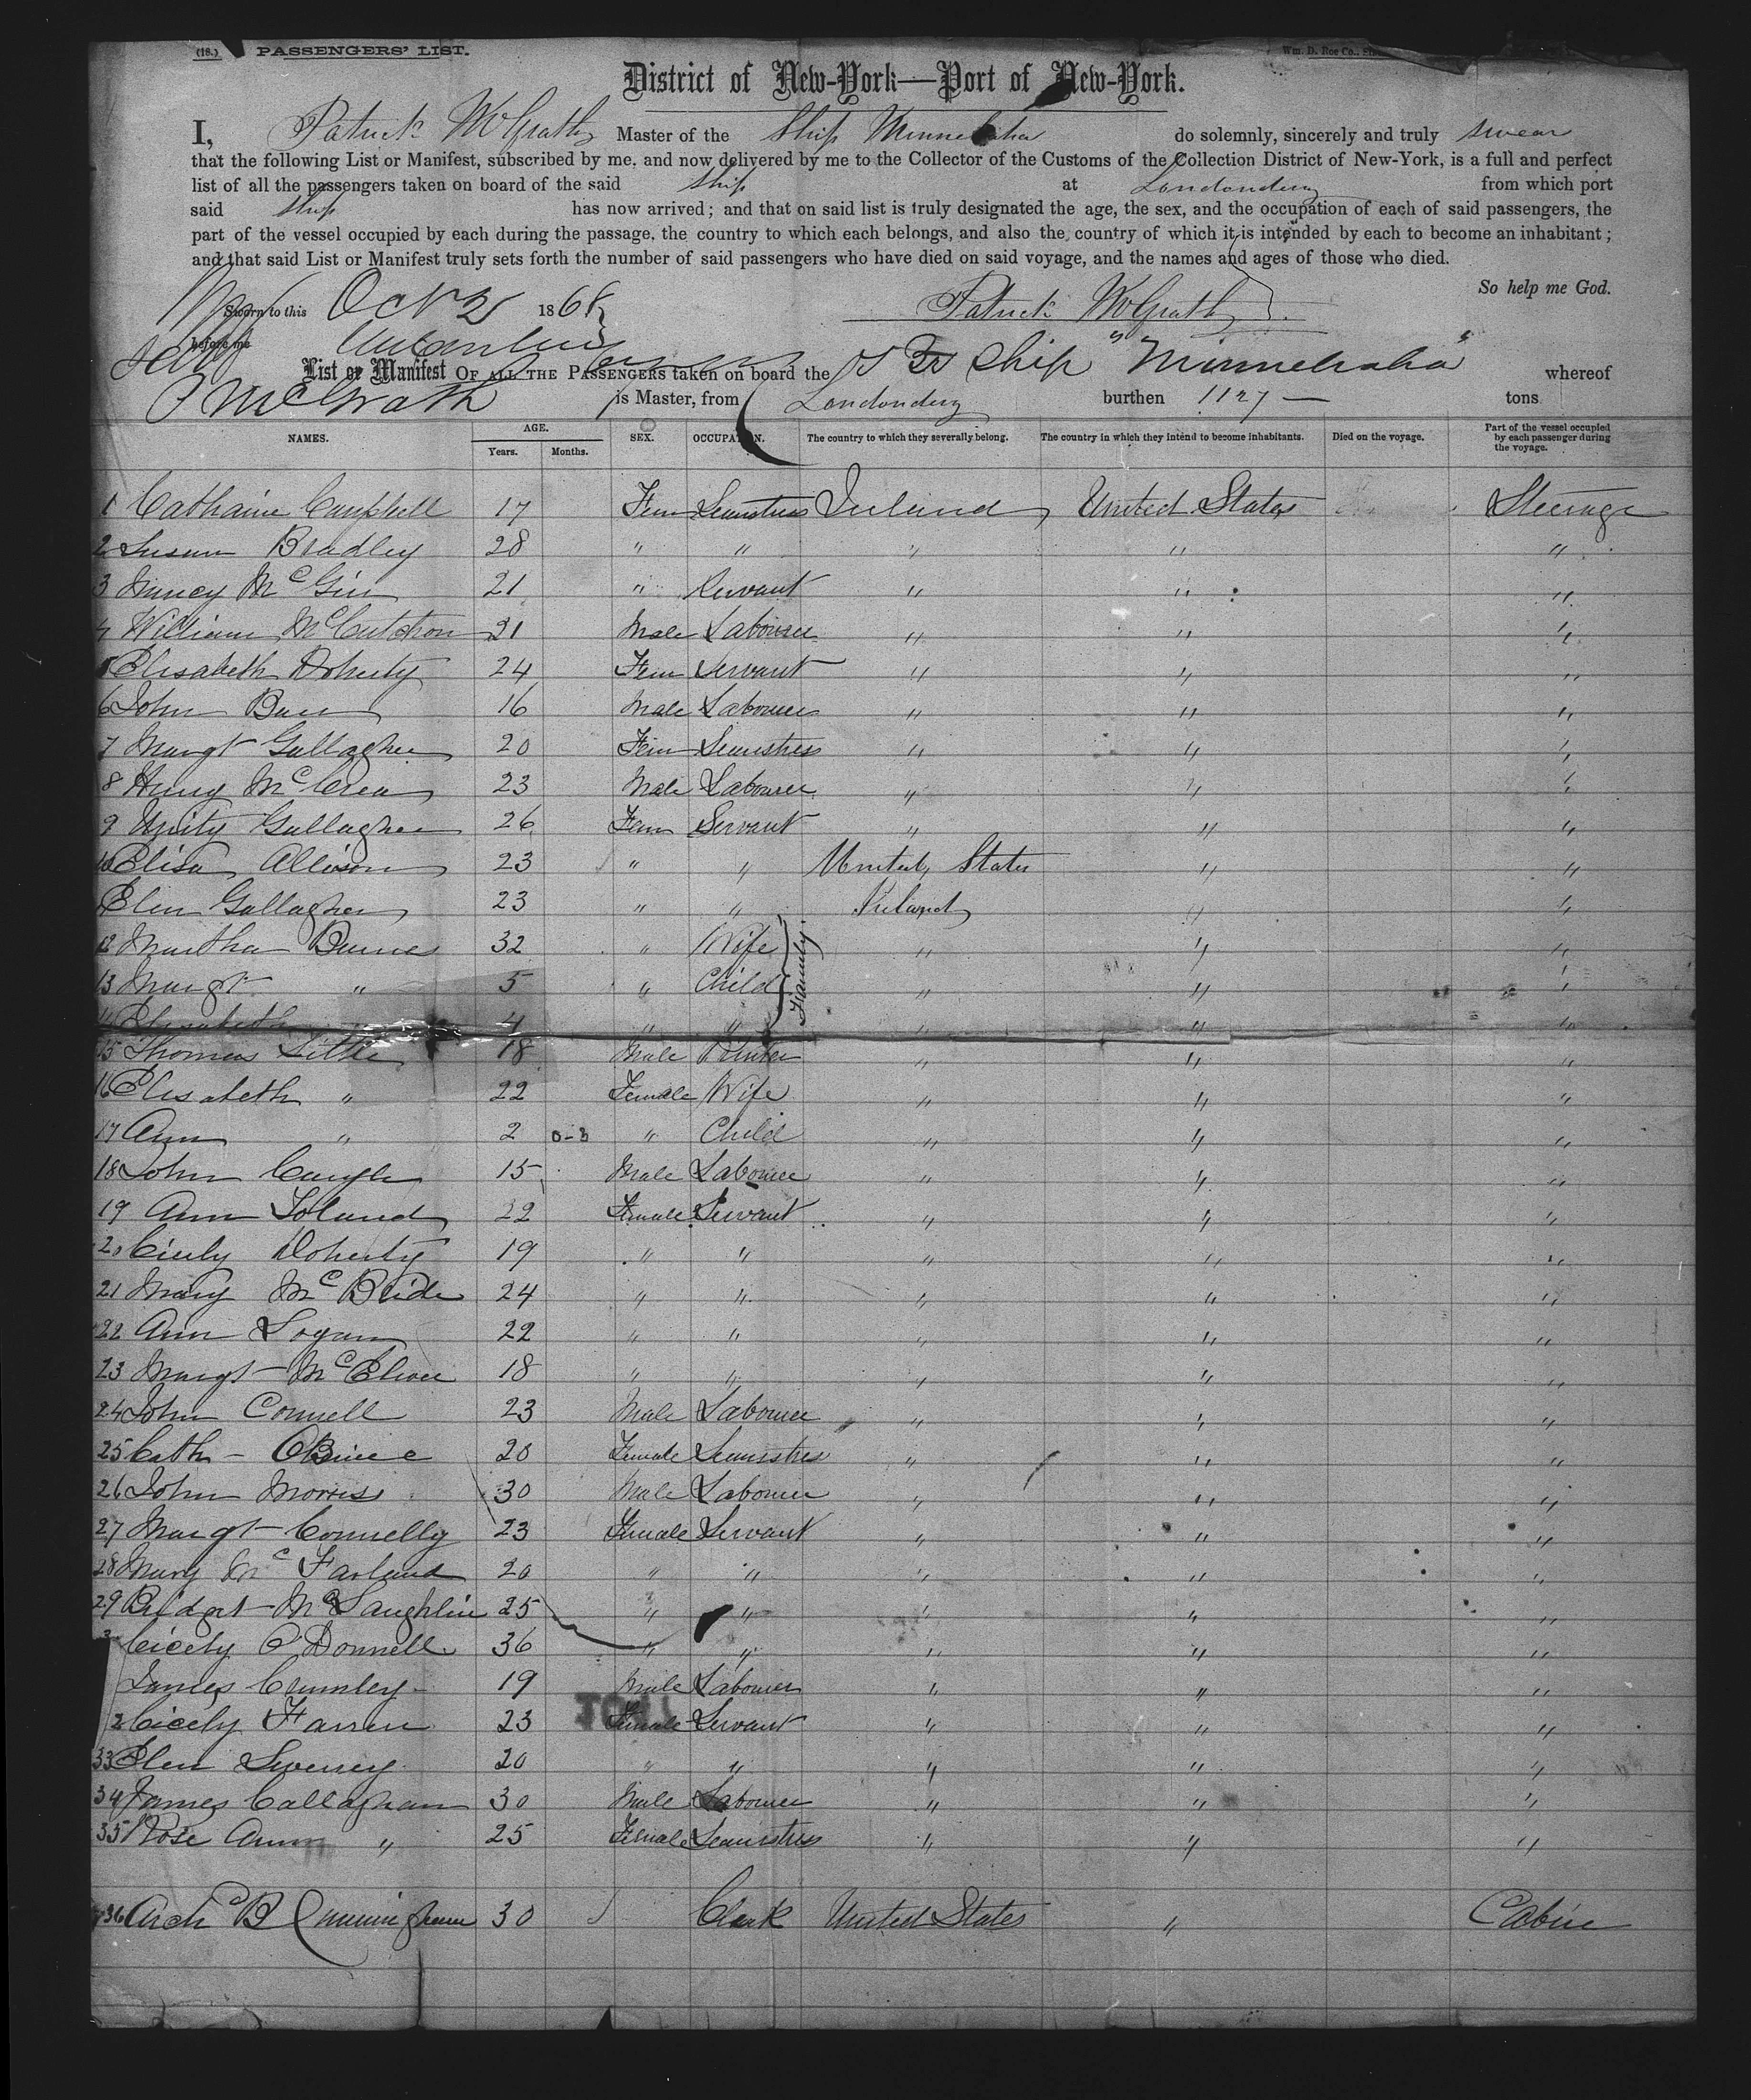 (18.) PASSENGERS' LIST.
Wm. D. Roe Co.,
District of New-York—Port of New-York.
I, Patrick McGrath Master of the Ship Minnehaha do solemnly, sincerely and truly swear
that the following List or Manifest, subscribed by me, and now delivered by me to the Collector of the Customs of the Collection District of New-York, is a full and perfect
list of all the passengers taken on board of the said Ship at Londonderry from which port
said Ship has now arrived; and that on said list is truly designated the age, the sex, and the occupation of each of said passengers, the
part of the vessel occupied by each during the passage, the country to which each belongs, and also the country of which it is intended by each to become an inhabitant;
and that said List or Manifest truly sets forth the number of said passengers who have died on said voyage, and the names and ages of those who died.
So help me God.
Sworn to this Oct 2 1868 Patrick McGrath
before me
List or Manifest OF ALL THE PASSENGERS taken on board the Ship "Minnehaha" whereof
P McGrath is Master, from Londonderry burthen 1127 tons
NAMES. AGE. Years. Months. SEX. OCCUPATION. The country to which they severally belong. The country in which they intend to become inhabitants. Died on the voyage. Part of the vessel occupied by each passenger during the voyage.
1 Catharine Campbell 17 Fem Seamstress Ireland United States Steerage
2 Susan Bradley 28 " " " " "
3 Nancy McGinn 21 " Servant " " "
4 William McCutchon 21 Male Labourer " " "
5 Elisabeth Doherty 24 Fem Servant " " "
6 John Barr 16 Male Labourer " " "
7 Margt Gallagher 20 Fem Seamstress " " "
8 Henry McCrea 23 Male Labourer " " "
9 Unity Gallagher 26 Fem Servant " " "
10 Elisa Allison 23 " " United States " "
Elen Gallagher 23 " " Ireland " "
12 Martha Burns 32 " Wife Family " " "
13 Margt " 5 " Child " " "
14 Elisabeth 4 " " " " "
15 Thomas Little 18 Male " " "
16 Elisabeth " 22 Female Wife " " "
17 Ann " 2 0-3 " Child " " "
18 John 15 Male Labourer " " "
19 Ann Toland 22 Female Servant " " "
20 Cicily Doherty 19 " " " " "
21 Mary McBride 24 " " " " "
22 Ann Logan 22 " " " " "
23 Margt 18 " " " " "
24 John Connell 23 Male Labourer " " "
25 Cath 20 Female Seamstress " " "
26 John Morris 30 Male Labourer " " "
27 Margt Connelly 23 Female Servant " " "
28 Mary McFarland 20 " " " " "
29 Bridget McLaughlin 25 " " " " "
3 Cicely O'Donnell 36 " " " " "
James Crumley 19 Male Labourer " " "
2 Cicely Farren 23 Female Servant " " "
33 Elen Sweeney 20 " " " " "
34 James Callaghan 30 Male Labourer " " "
35 Rose Ann " 25 Female Seamstress " " "
36 Arch B Cunningham 30 Clerk United States " Cabin